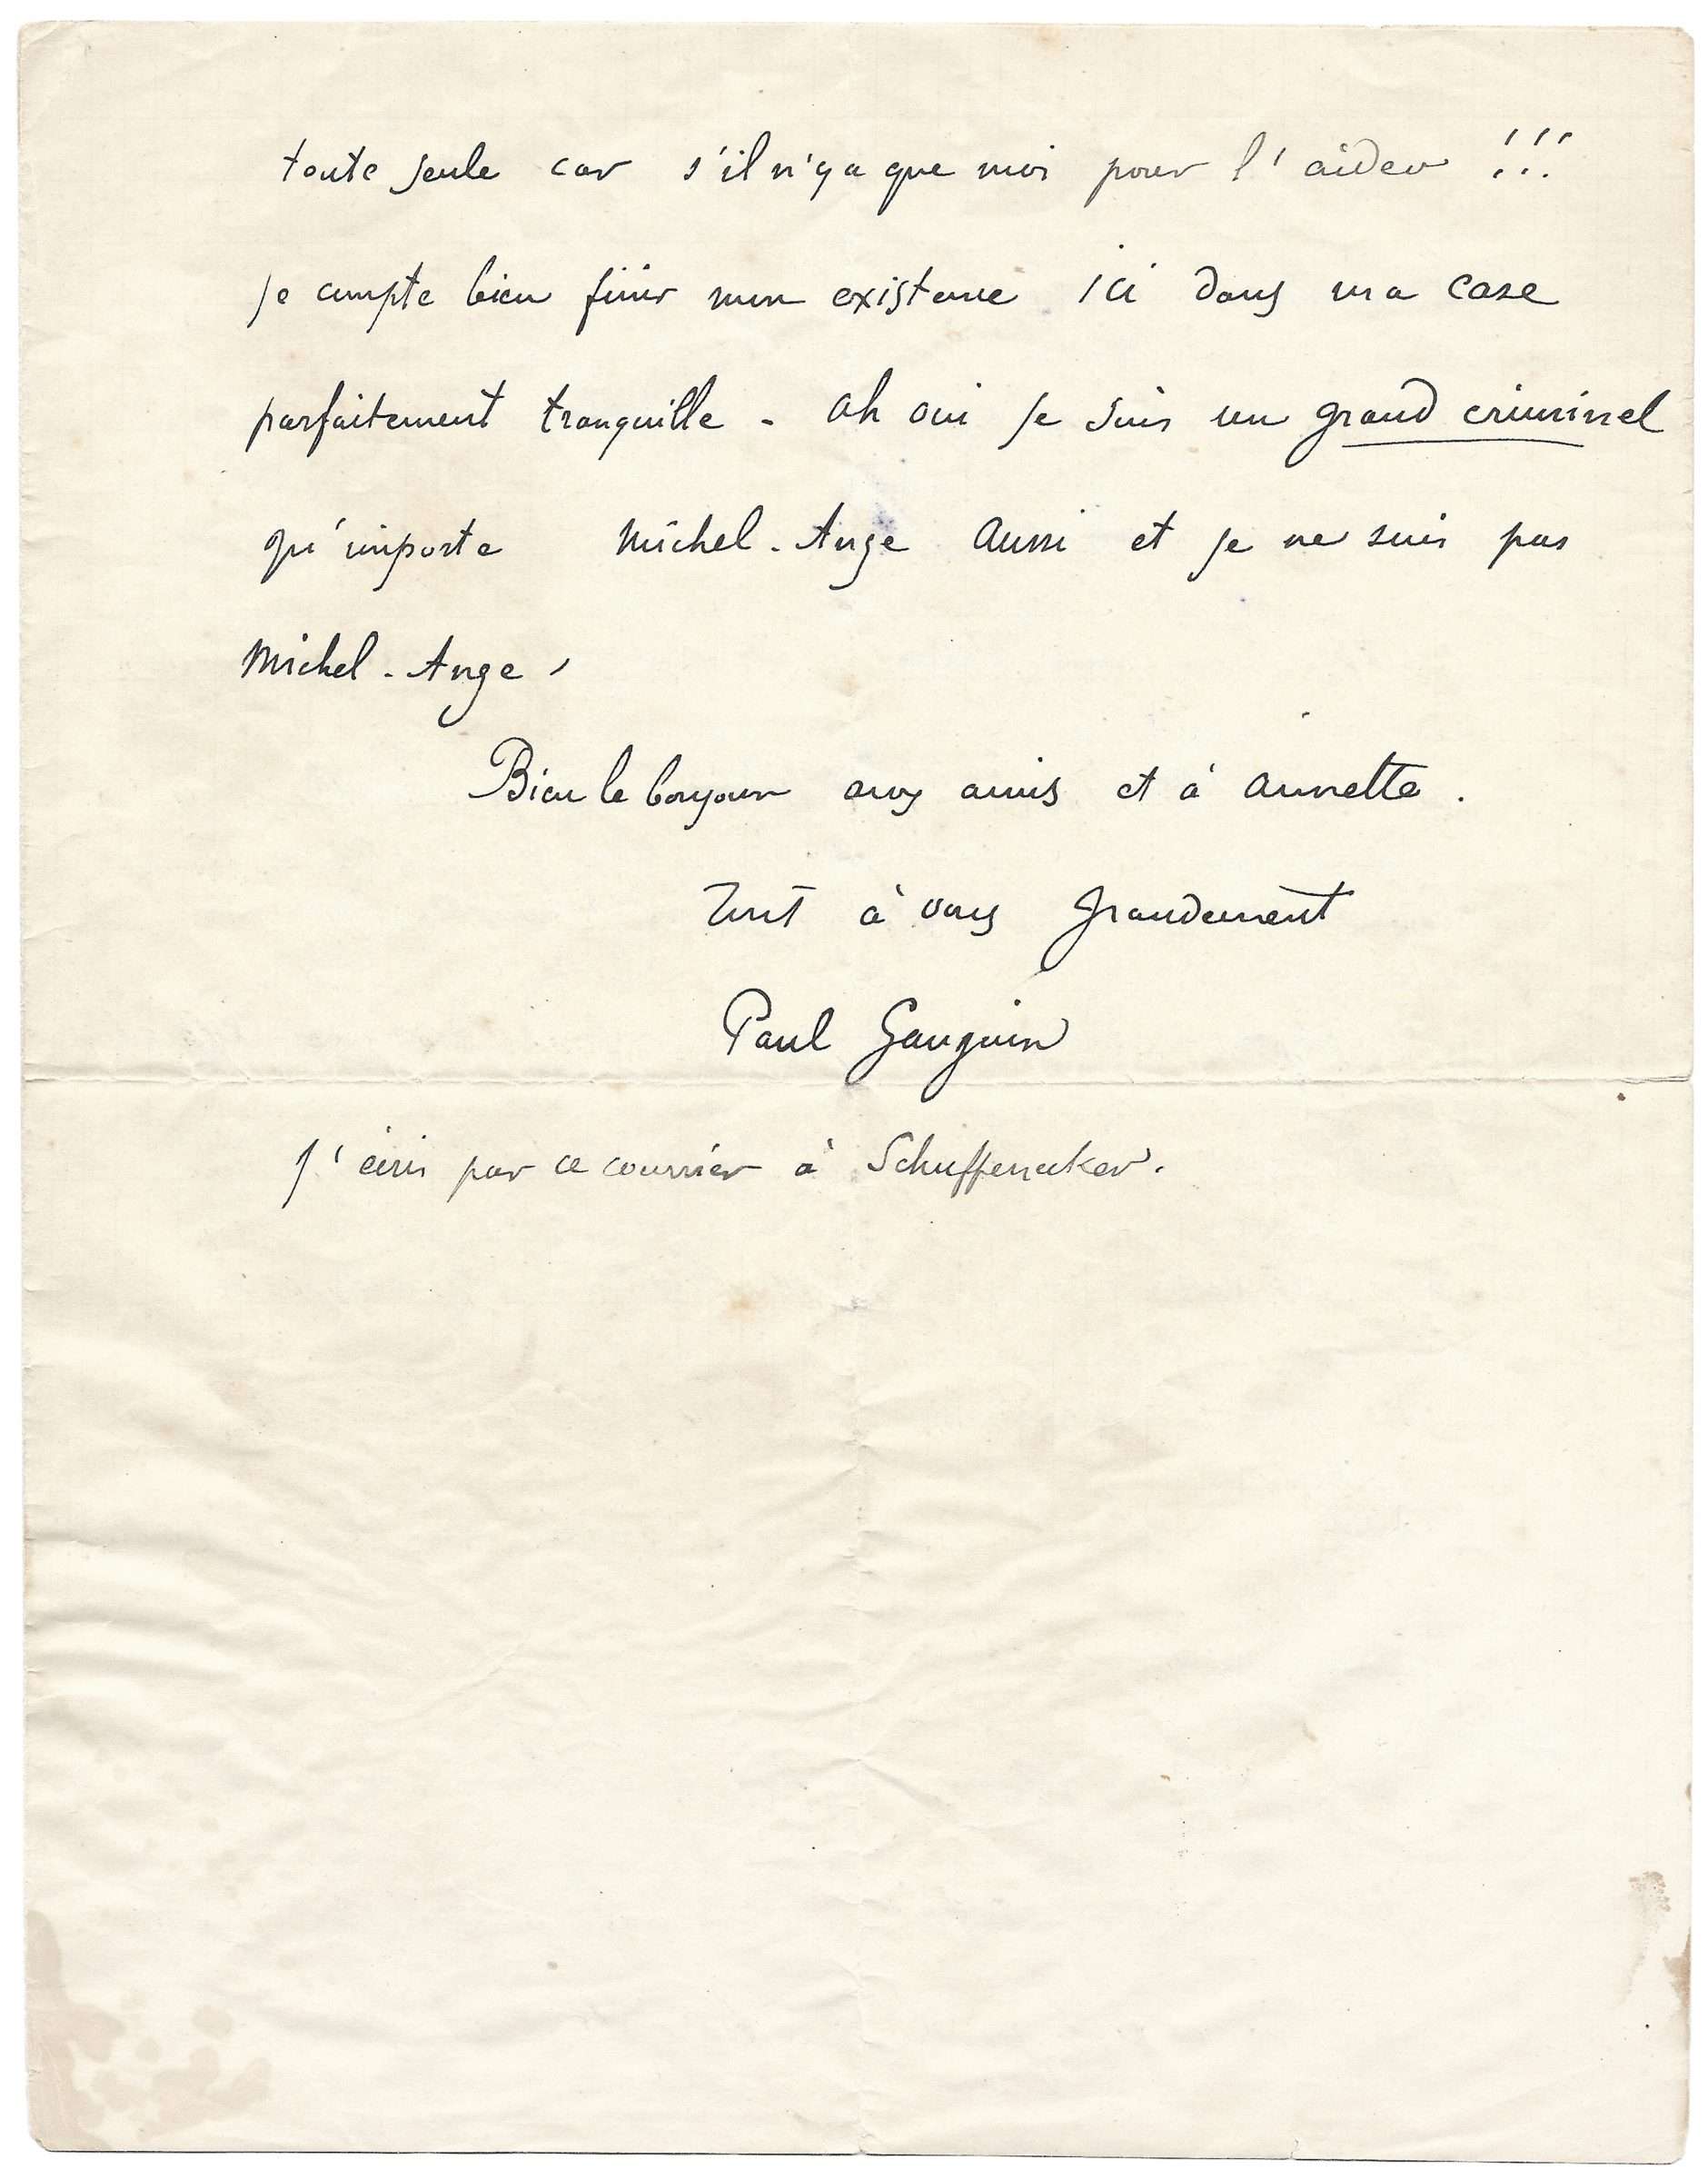 toute seule car s'il n'y a que moi pour l'aider !!!
Je compte bien finir mon existence ici dans ma case
parfaitement tranquille - Ah oui je suis un grand criminel
qu'importe Michel-Ange aussi et je ne suis pas
Michel-Ange,
Bien le bonjour aux amis et à Annette.
Tout à vous grandement
Paul Gauguin
J'écris par ce courrier à Schuffenecker.